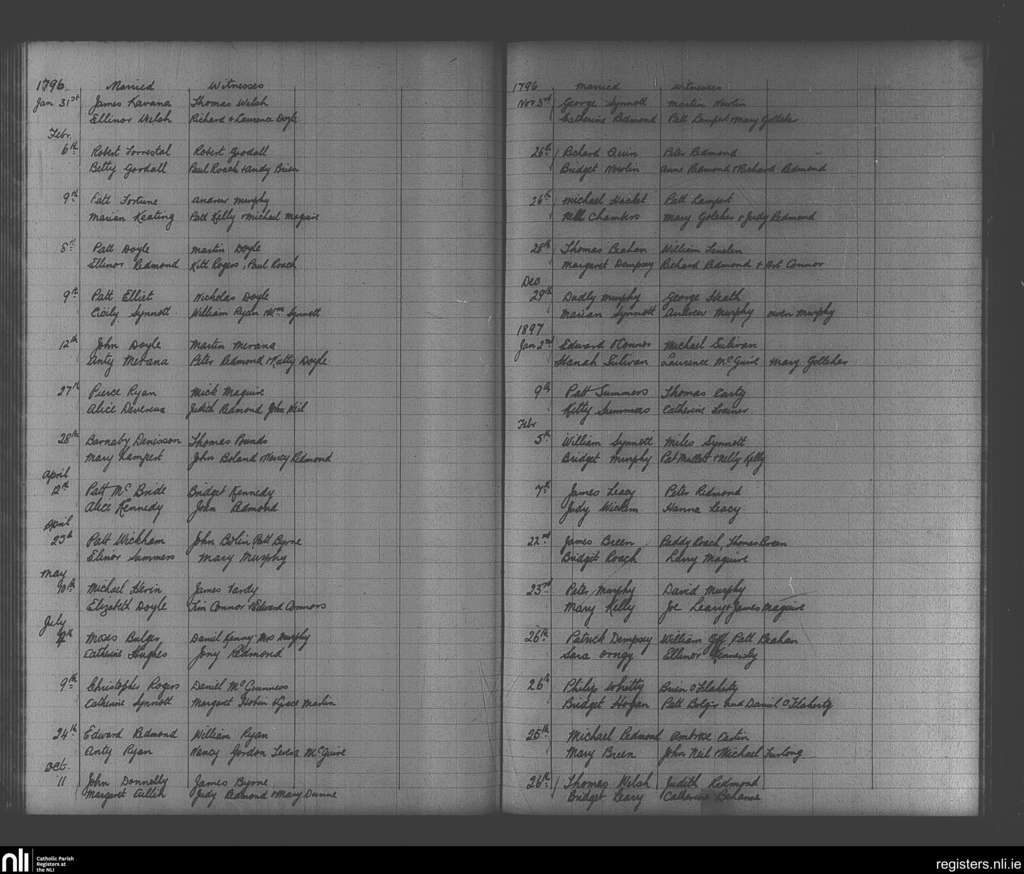 1796 Married Witnesses
Jan 31st James Kavana Thomas Welsh
Ellinor Welsh Richard & Laurence Doyle
Febr
6th Robert Forrestal Robert Goodall
Betty Goodall Paul Roach & Andy Brien
9th Patt Fortune Andrew Murphy
Marian Keating Patt Kelly & Michael Maguire
5th Patt Doyle Martin Doyle
Ellinor Redmond Kitt Rogers, Paul Roach
9th Patt Elliet Nicholas Doyle
Cicily Synnott William Ryan Wm Synnott
12th John Doyle Martin Merana
Anty Merana Peter Redmond & Katty Doyle
27th Pierce Ryan Mick Maguire
Alice Devereux Judith Redmond John Neil
28th Barnaby Denisson Thomas Pounds
Mary Lampert John Boland & Nancy Redmond
April
12th Patt Mc Bride Bridget Kennedy
Alice Kennedy John Redmond
April
23th Patt Wickham John Bolin Patt Byrne
Elinor Summers Mary Murphy
May
10th Michael James Vardy
Elizabeth Doyle Jim Connor & Edward Connors
July
Moses Bulger Daniel Kenny Mrs Murphy
Catherine Hughes Jony Redmond
9th Christopher Rogers Daniel McGuinness
Catherine Synnott Margaret & Grace Martin
24th Edward Redmond William Ryan
Anty Ryan Nancy Gordon Teresa McGuire
Oct
11 John Donnelly James Byrne
Margaret Cullin Judy Redmond & Mary Dunne
1796 Married Witnesses
Nov 3rd George Synnott Martin Nowlin
Catherine Redmond Patt Lampert & Mary Goteher
26th Richard Quin Peter Redmond
Bridget Nowlin Anne Redmond & Richard Redmond
26th Michael Hackel Patt Lampert
Nelly Chambers Mary Goteher & Judy Redmond
28th Thomas Beahan William
Margaret Dempsey Richard Redmond & Art Connor
Dec
29th Dudly Murphy George Heath
Marian Synnott Andrew Murphy Owen Murphy
1897
Jan 2nd Edward O'Connor Michael Sulivan
Hanah Sulivan Laurence McGuire Mary Goteher
9th Patt Summers Thomas Carty
Kitty Summers Catherine
Febr
5th William Synnott Miles Synnott
Bridget Murphy Pat Mallott & Nelly Kelly
7th James Leacy Peter Redmond
Judy Wickem Hanna Leacy
22nd James Breen Paddy Roach, Thomas Breen
Bridget Roach Larry Maguire
23rd Peter Murphy David Murphy
Mary Kelly Joe Leary & James Maguire
26th Patrick Dempsey William Goff Patt Beahan
Sara Orngy Ellinor Hennessy
26th Philip Whitty Brien O'Flaherty
Bridget Hogan Patt Bolger and Daniel O'Flaherty
25th Michael Redmond Ambrose Costin
Mary Breen John Neil & Michael Furlong
26th Thomas Welsh Judith Redmond
Bridget Leary Catherine Behanne
nli Catholic Parish
Registers at
the NLI
registers.nli.ie